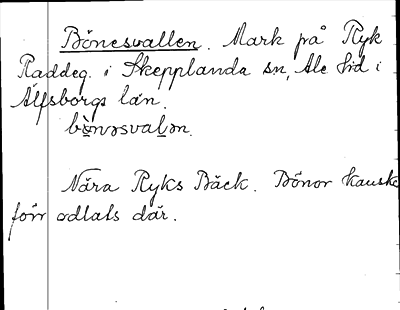 Bönesvallen. Mark på Ryk
Raddeg. i Skepplanda sn, Ale hd i
Älfsborgs län.
Nära Ryks Bäck. Bönor kanske
förr odlats där.